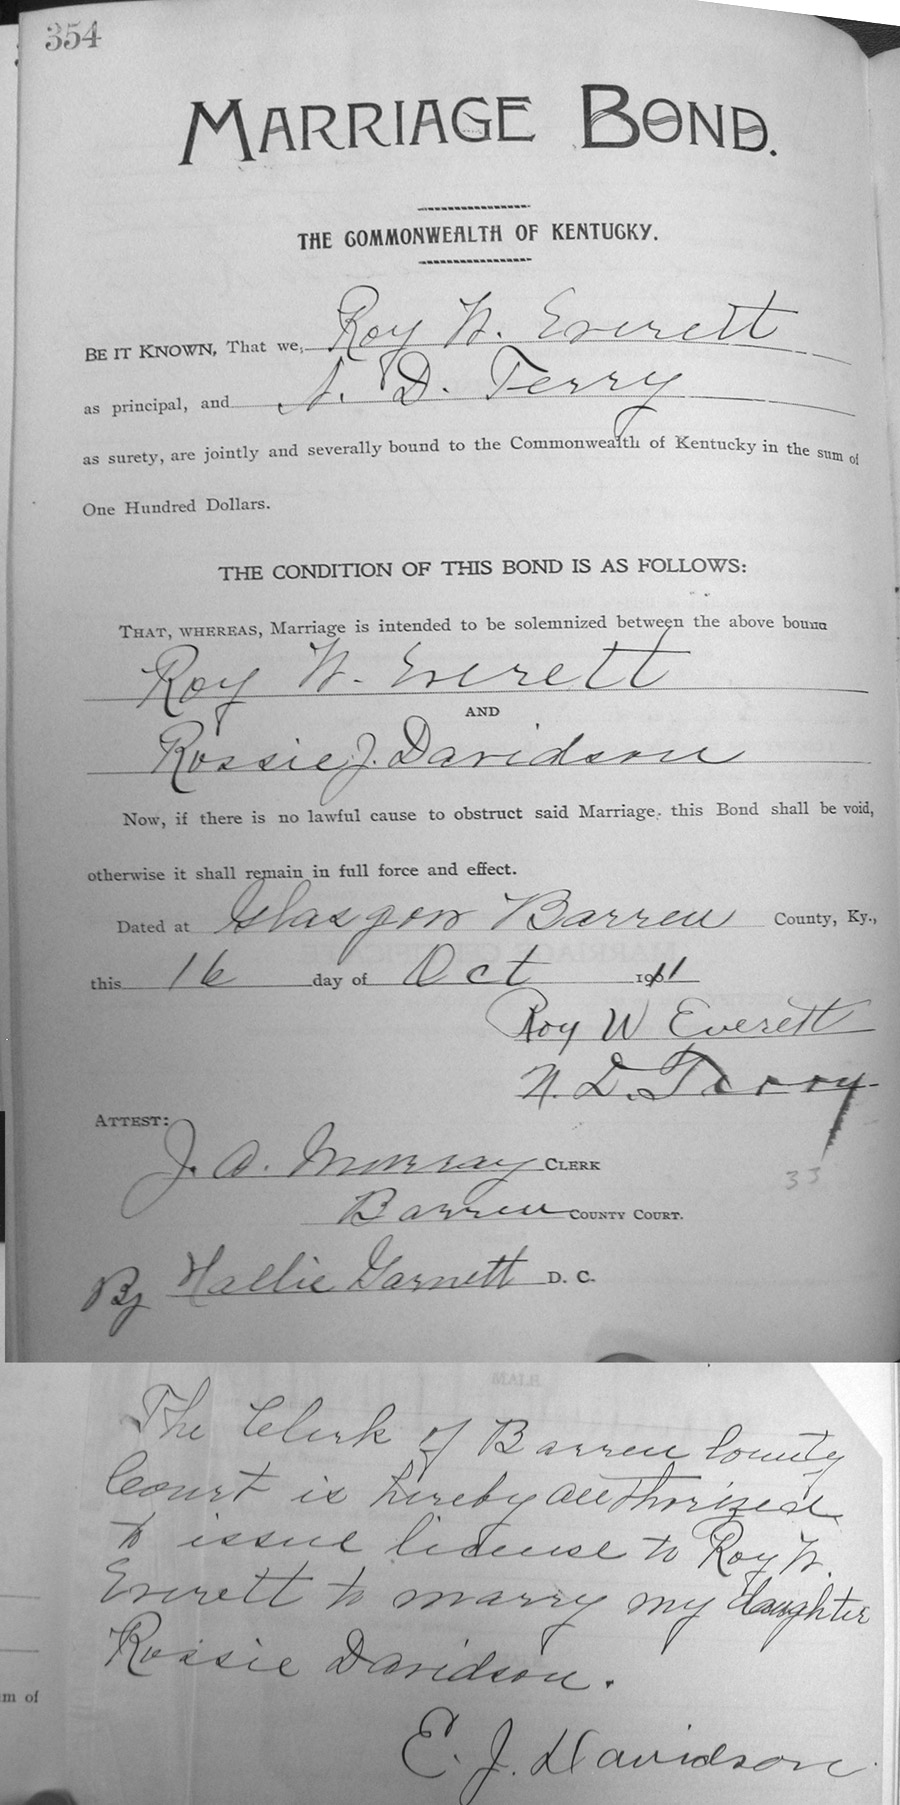 354
MARRIAGE BOND.
THE COMMONWEALTH OF KENTUCKY.
BE IT KNOWN, That we, Roy W. Everett
as principal, and N. D. Terry
as surety, are jointly and severally bound to the Commonwealth of Kentucky in the sum of
One Hundred Dollars.
THE CONDITION OF THIS BOND IS AS FOLLOWS:
THAT, WHEREAS, Marriage is intended to be solemnized between the above bound
Roy W. Everett
AND
Rossie J. Davidson
Now, if there is no lawful cause to obstruct said Marriage, this Bond shall be void,
otherwise it shall remain in full force and effect.
Dated at Glasgow Barren County, Ky.,
this 16 day of Oct 1911
Roy W Everett
N. D. Terry
ATTEST:
J. A. Murray CLERK
33
Barren COUNTY COURT.
By Hallie Garnett D. C.
MALE
The Clerk of Barren County
Court is hereby authorized
to issue license to Roy W.
Everett to marry my daughter
Rossie Davidson.
um of
E. J. Davidson